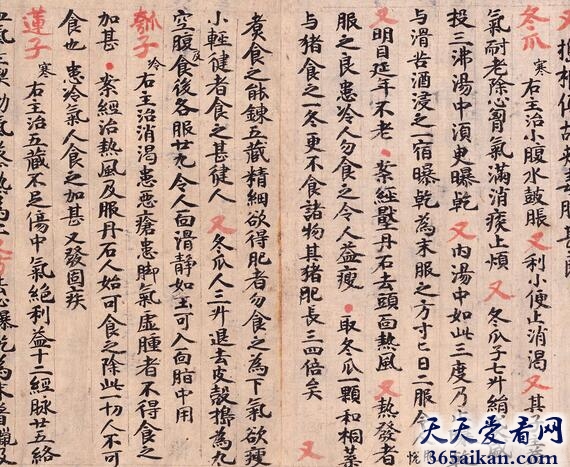 冬瓜 寒 右主治小腹水鼓脹 又 利小便止消渴 又 其子主
氣耐老除心胷氣滿消痰止煩 又 冬瓜子七升絹
投三沸湯中湏臾曝乾 又 內湯中如此三度乃
与滑苦酒浸之一宿曝乾為末服之方寸匕日二服令
又 明目延年不老·案經壓丹石去頭面熱風 又 熱發者
服之良患冷人勿食之令人益瘦·取冬瓜一顆和桐葉
与猪食之一冬更不食諸物其猪肥長三四倍矣 又
煑食之能鍊五藏精細欲得肥者勿食之為下氣欲瘦
小輕健者食之甚健人 又 冬瓜人三升退去皮殼擣為丸
空腹及食後各服廿丸令人面滑静如玉可入面脂中用
瓠子 冷 右主治消渴患惡瘡患脚氣虛腫者不得食之
加甚·案經治熱風及服丹石人始可食之除此一切人不可
食也患冷氣人食之加甚又發固疾
蓮子 寒 右主治五藏不足傷中氣絶利益十二經脉廿五絡
天天爱看网
365aikan.com